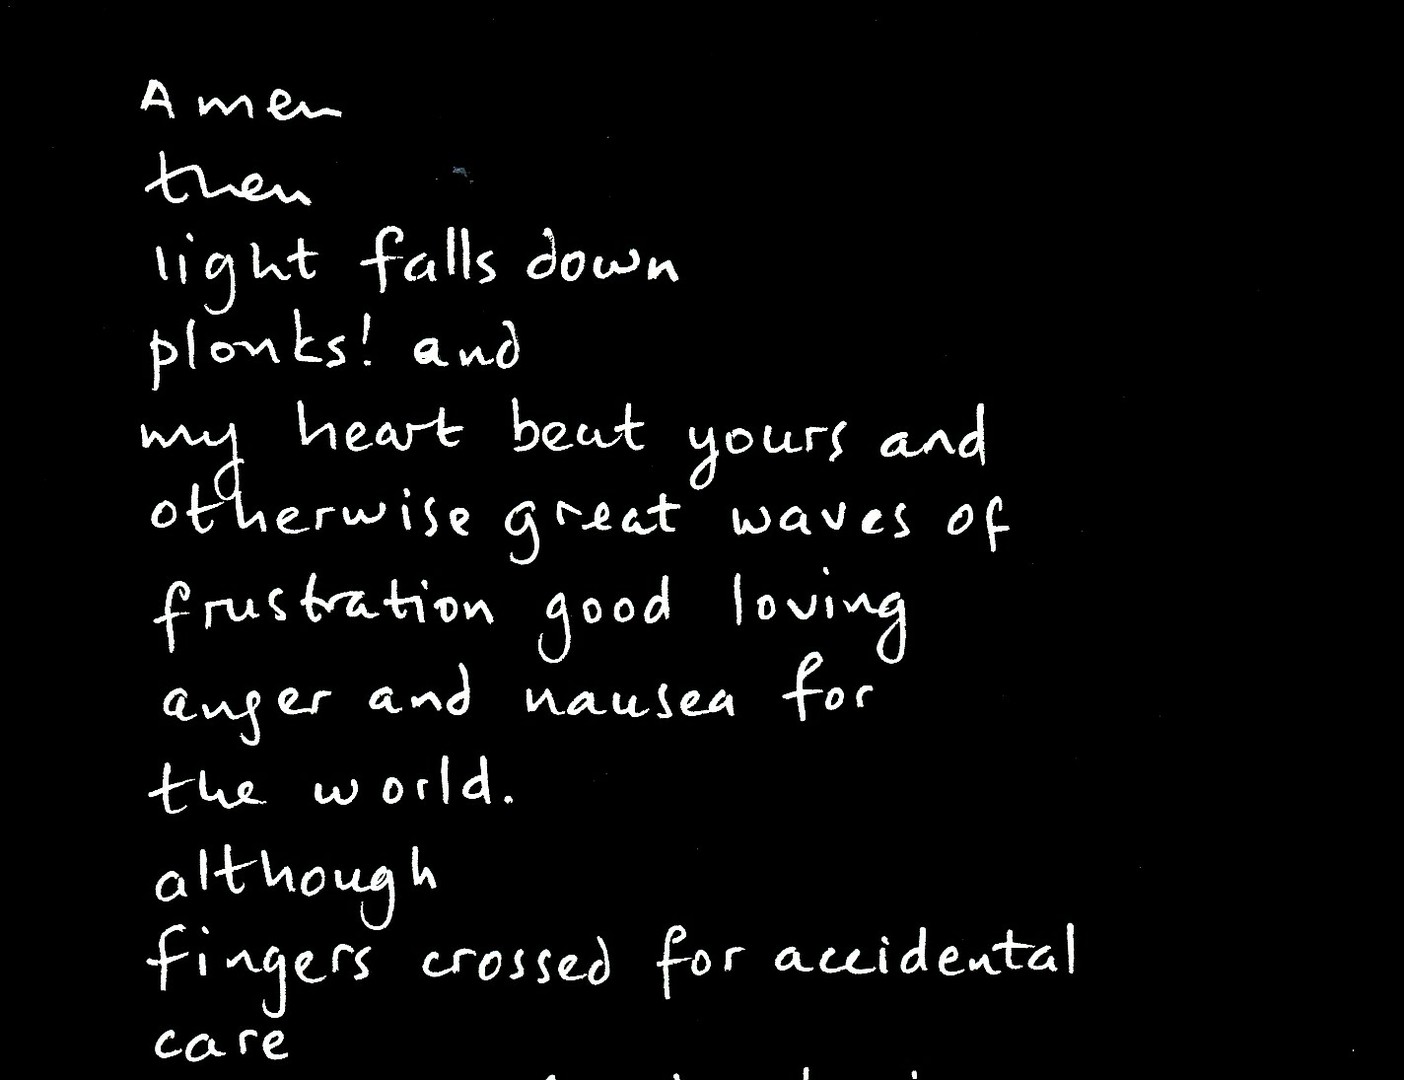 Amen
then
light falls down
plonks! and
my heart beat yours and
otherwise great waves of
frustration good loving
anger and nausea for
the world.
although
fingers crossed for accidental
care